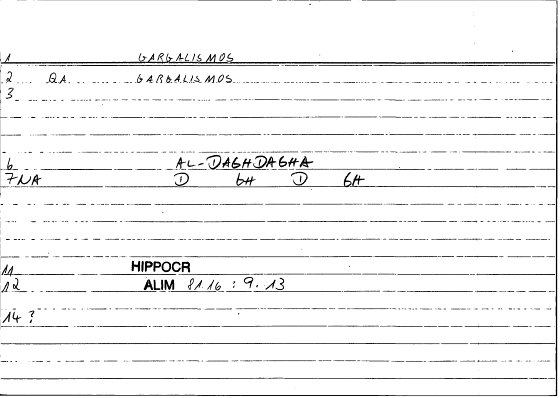 1 GARGALISMOS
2 QA GARGALISMOS
3
6 AL-DAGHDAGHA
7 NA D GH D GH
11 HIPPOCR
12 ALIM 81.16 : 9.13
14 ?